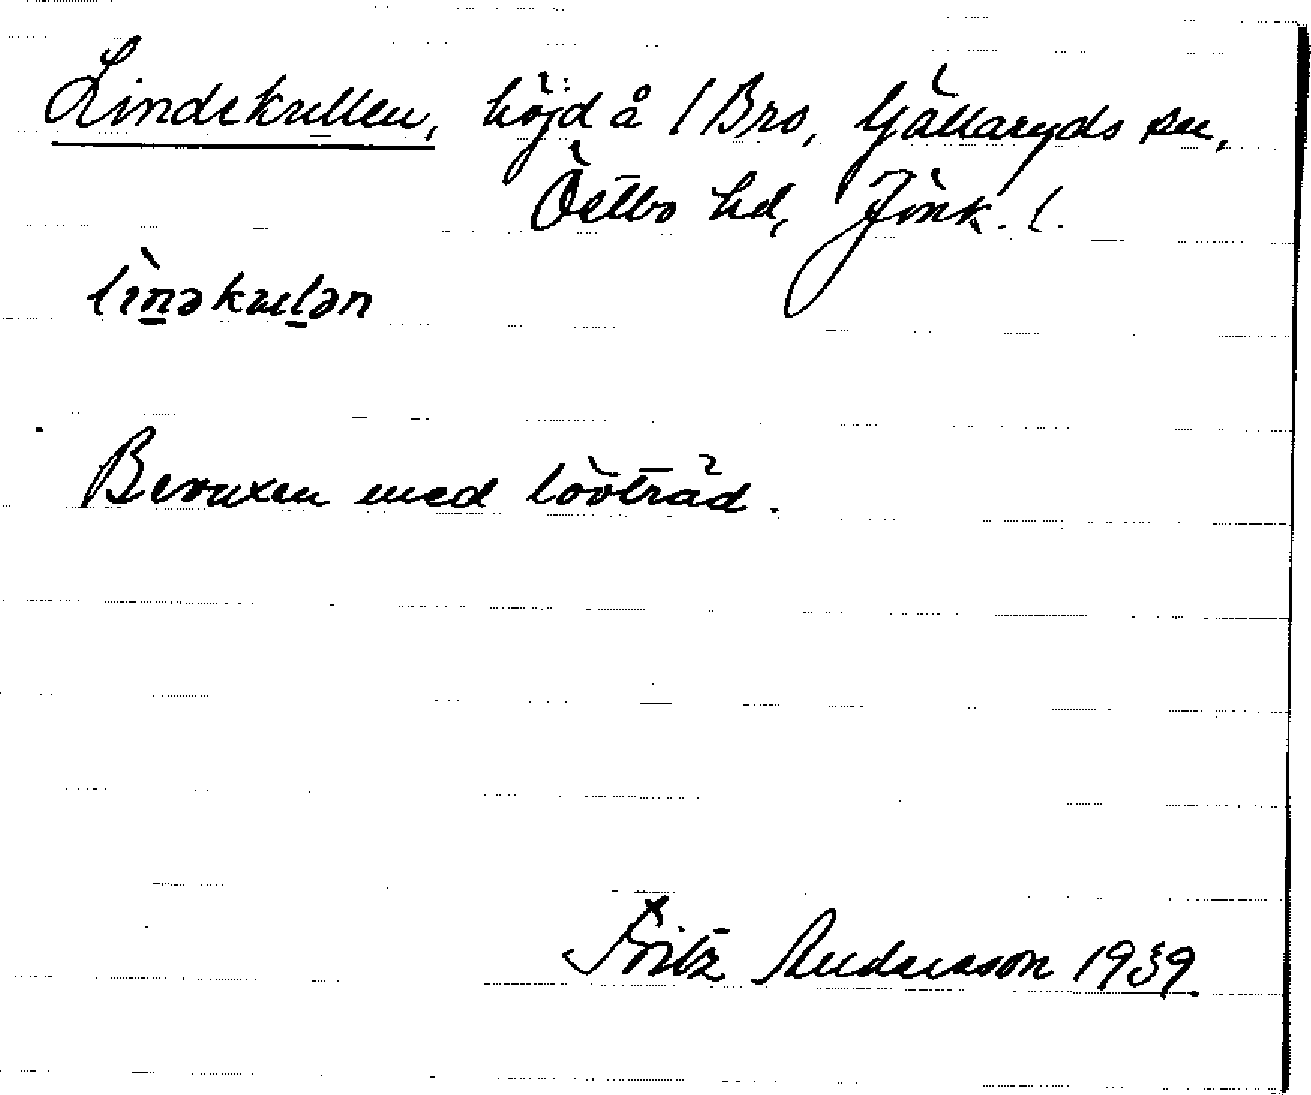 Lindekullen, höjd å / Bro, Gällaryds sn,
Östbo hd, Jönk. l.
lìnəkulən
Bevuxen med lövträd.
Fritz Andersson 1939.